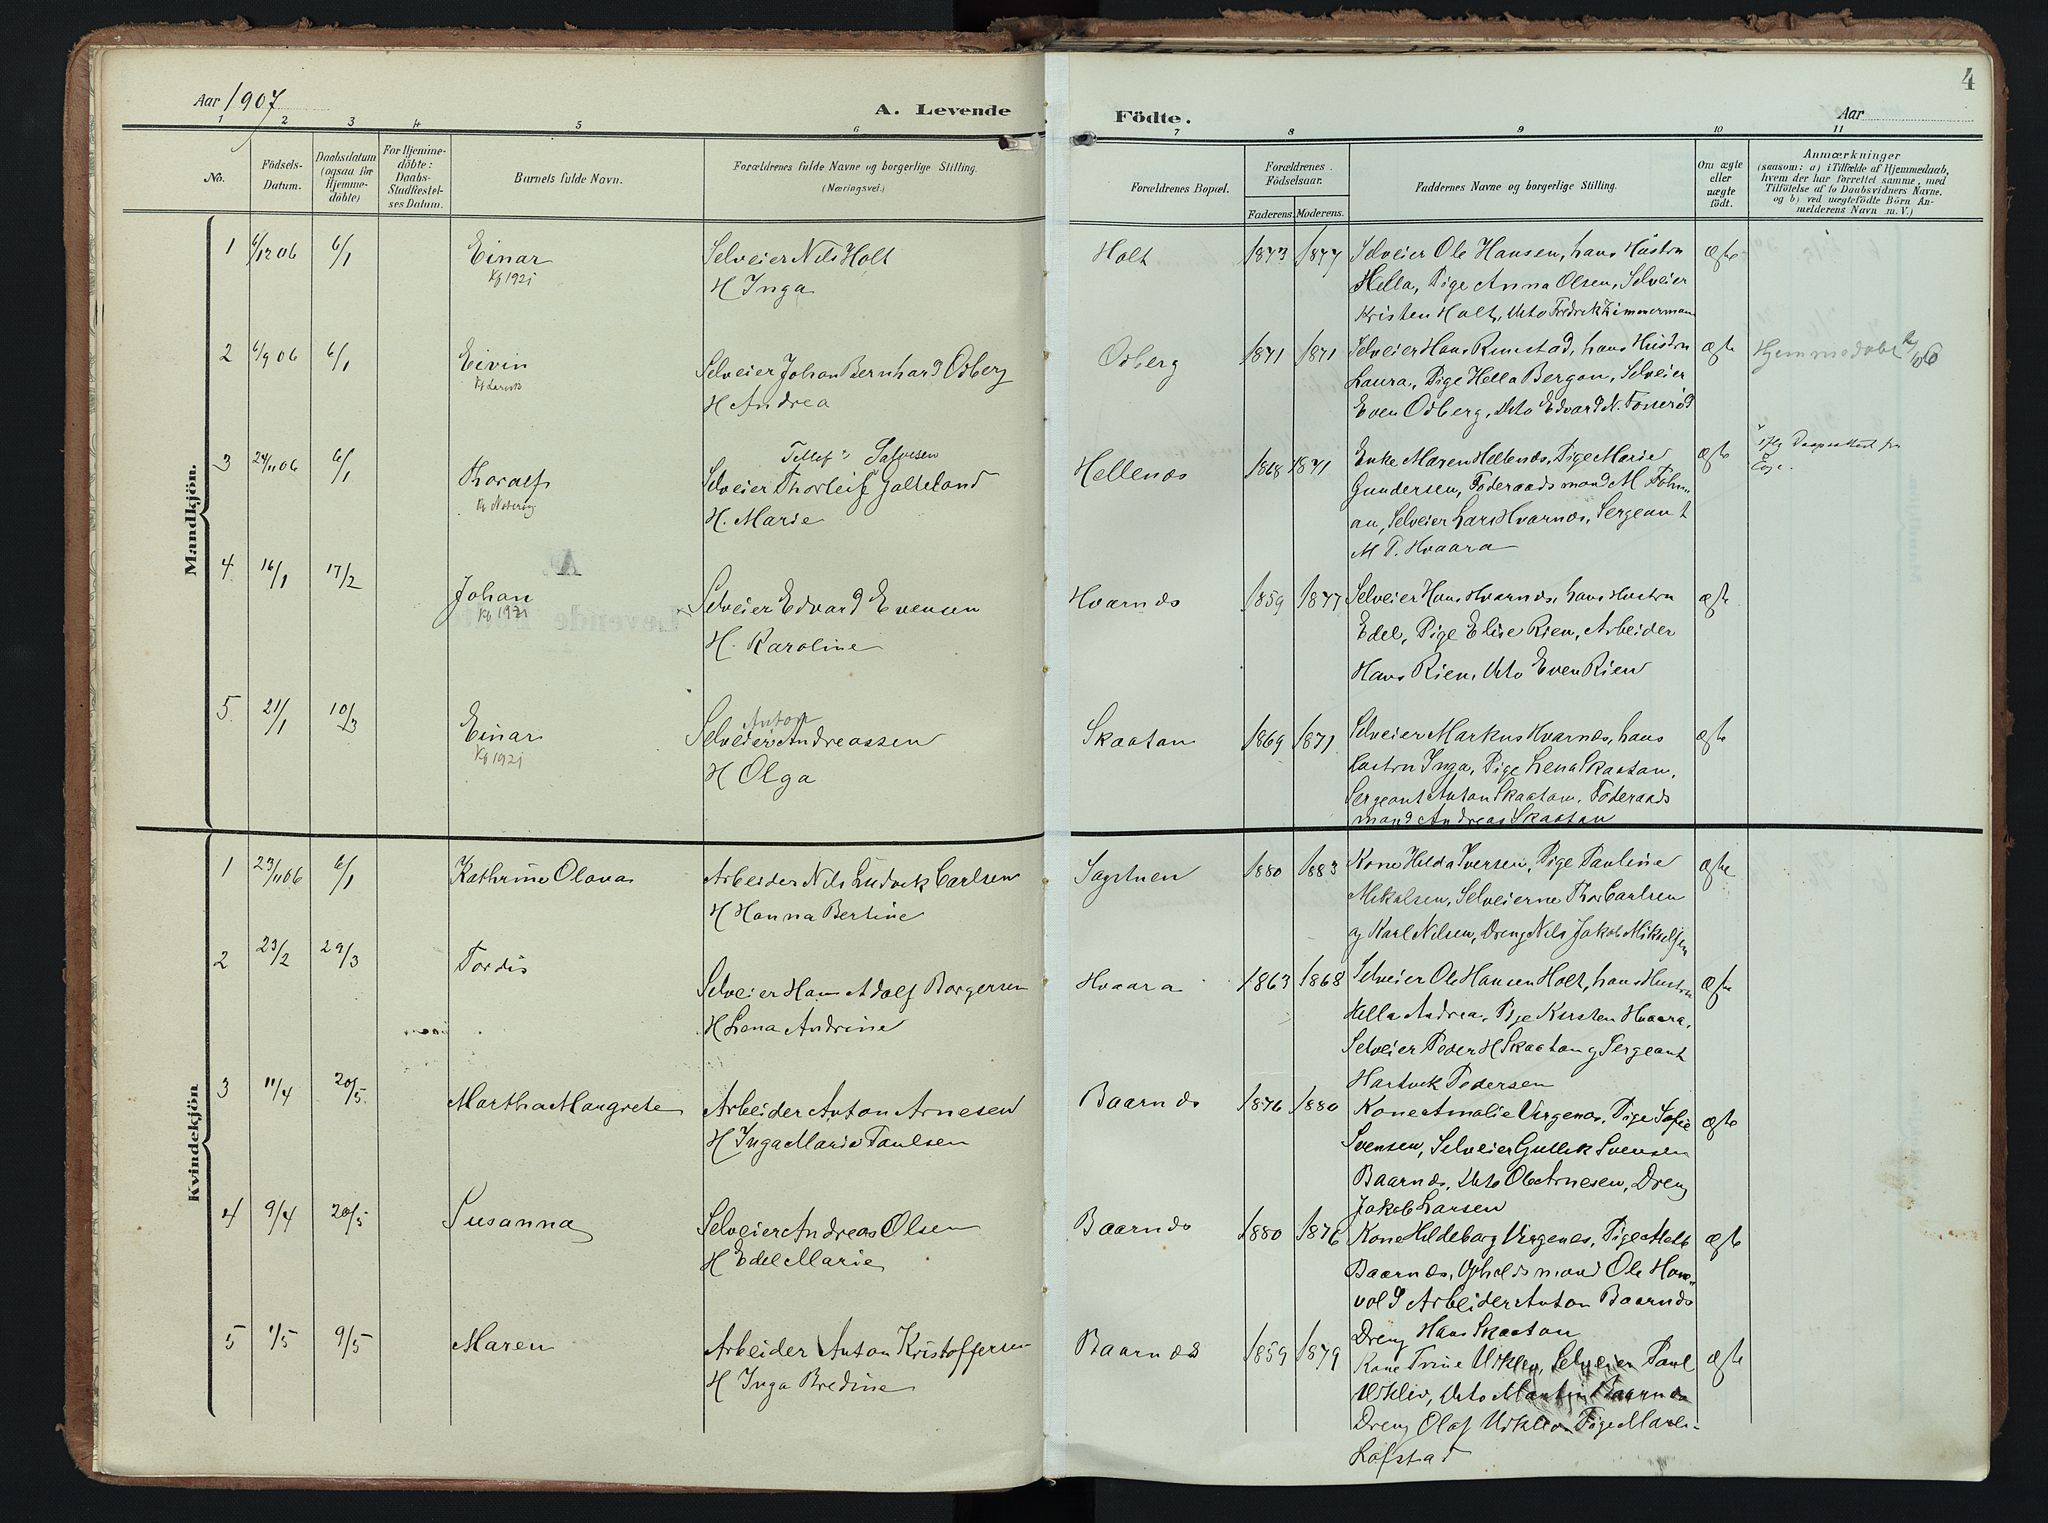 Aar 1907
A. Levende
1 2 3 4 5 6
No.
Födsels-
Datum.
Daabsdatum
(ogsaa for
Hjemme-
döbte)
For Hjemme-
döbte:
Daabs-
Stadfæstel-
ses Datum.
Barnets fulde Navn.
Forældrenes fulde Navne og borgerlige Stilling.
(Næringsvei.)
Mandkjön.
1 6/12 06 6/1 Einar Selveier Nils Holt
Kf 1921 H Inga
2 6/9 06 6/1 Eivin Selveier Johan Bernhard Odberg
Kf Larvik H Andrea
3 24/11 06 6/1 Tellef Salvesen
Thoralf Selveier Thorleif Galteland
H. Marie
4 16/1 17/2 Johan Selveier Edvard Evensen
Kf 1921 H. Karoline
5 21/1 10/3 Anton
Einar Selveier Andreassen
Kf 1921 H Olga
Kvindekjön
1 23/11 06 6/1 Kathrine Olava Arbeider Nils Ludvik Carlsen
H Hanna Bertine
2 23/2 29/3 Tordis Selveier Hans Adolf Borgersen
H Lena Andrine
3 11/4 20/5 Martha Margrete Arbeider Anton Arnesen
H Inga Marie Paulsen
4 9/4 20/5 Susanna Selveier Andreas Olsen
H Edel Marie
5 1/5 9/5 Maren Arbeider Anton Kristoffersen
H Inga Bredine
4
Födte.
Aar
7 8 9 10 11
Forældrenes Bopæl.
Forældrenes
Födselsaar.
Faderens. Moderens.
Faddernes Navne og borgerlige Stilling.
Om ægte
eller
uægte
födt.
Anmærkninger
(saasom: a) i Tilfælde af Hjemmedaab,
hvem der har forrettet samme, med
Tilföielse af to Daabsvidners Navne.
og b) ved uægtefödte Börn An-
melderens Navn m. V.)
Holt 1873 1877 Selveier Ole Hansen, hans Hustru ægte
Hella, Pige Anna Olsen, Selveier
Kristen Holt, Ukto Fredrik Zimmerman
Odberg 1871 1871 Selveier Hans Rimstad, hans Hustru ægte Hjemmedøbt
Laura, Pige Hella Bergan, Selveier
Even Odberg, Ukto Edvard N. Fonerød
Hellenæs 1868 1871 Enke Maren Hellenæs, Pige Marie ægte iflg Daapsattest fra
Gundersen, Føderaadsmand M Johan
an, Selveier Lars Hvarnæs, Sergeant
M P. Hvaara
Hvarnæs 1859 1877 Selveier Hans Hvarnæs, hans Hustru ægte
Edel, Pige Elise Rien, Arbeider
Hans Rien, Ukto Even Rien
Skaatan 1869 1871 Selveier Markus Hvarnæs, hans ægte
Hustru Inga, Pige Lena Skaatan,
Sergeant Anton Skaatan, Føderaads
mand Andreas Skaatan
Sagstuen 1880 1883 Kone Hilda Iversen, Pige Pauline ægte
Mikalsen, Selveierne Thor Carlsen
og Karl Nilsen, Dreng Nils Jakob Mikkelsen
Hvaara 1863 1868 Selveier Ole Hansen Holt, hans Hustru ægte
Hella Andrea, Pige Kirsten Hvaara,
Selveier Peder H Skaatan og Sergeant
Hartvik Pedersen
Baarnæs 1876 1880 Kone Amalie Virgenæs, Pige Sofie ægte
Svensen, Selveier Gullik Svensen
Baarnæs, Ukto Ole Arnesen, Dreng
Jakob Larsen
Baarnæs 1880 1876 Kone Hildeborg Virgenes, Pige Melb ægte
Baarnæs, Opholdsmand Ole Hom-
vold Arbeider Anton Baarnæs
Dreng Hans Skaatan
Baarnæs 1859 1879 Kone Trine Utklev, Selveier Paul ægte
Utklev, Ukto Martin Baarnæs
Dreng Olaf Utklev Pige Maren
Lofstad